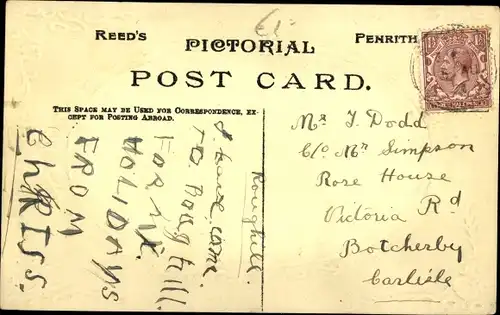 £1-
REED'S PICTORIAL PENRITH
POST CARD.
THIS SPACE MAY BE USED FOR CORRESPONDENCE, EX-
CEPT FOR POSTING ABROAD.
Roughill.
I have come
TO ROUGHill.
FOR MY
HOLIDAYS
FROM
CHRISS
Mr J. Dodd
C/o Mr Simpson
Rose House
Victoria Rd
Botcherby
Carlisle